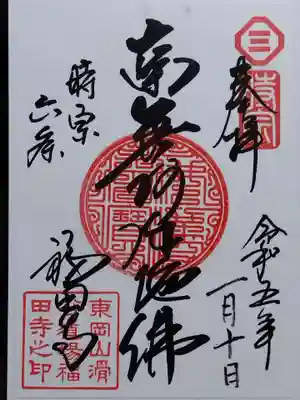 奉拝
令和五年
一月十日
南無阿弥陀佛
時宗
六条
福田寺
三
東岡山滑
田寺之印